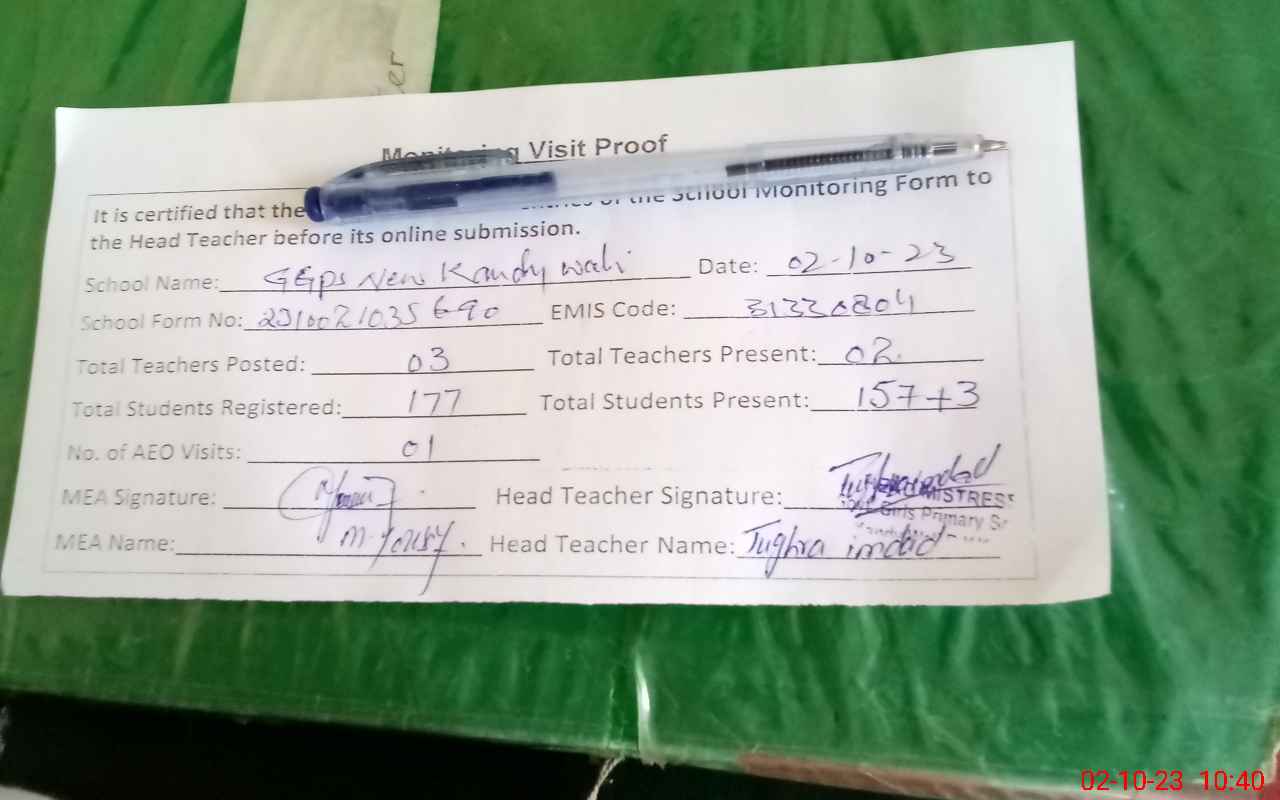 er
Monitoring Visit Proof
It is certified that the entries of the School Monitoring Form to
the Head Teacher before its online submission.
School Name: GGPS New Kandy wali Date: 02-10-23
School Form No: 2310021035690 EMIS Code: 31330804
Total Teachers Posted: 03 Total Teachers Present: 02
Total Students Registered: 177 Total Students Present: 157+3
No. of AEO Visits: 01
MEA Signature: Head Teacher Signature: Tughra imdad
MISTRESS
Girls Primary
MEA Name: M. Yousf. Head Teacher Name: Tughra imdad
02-10-23 10:40